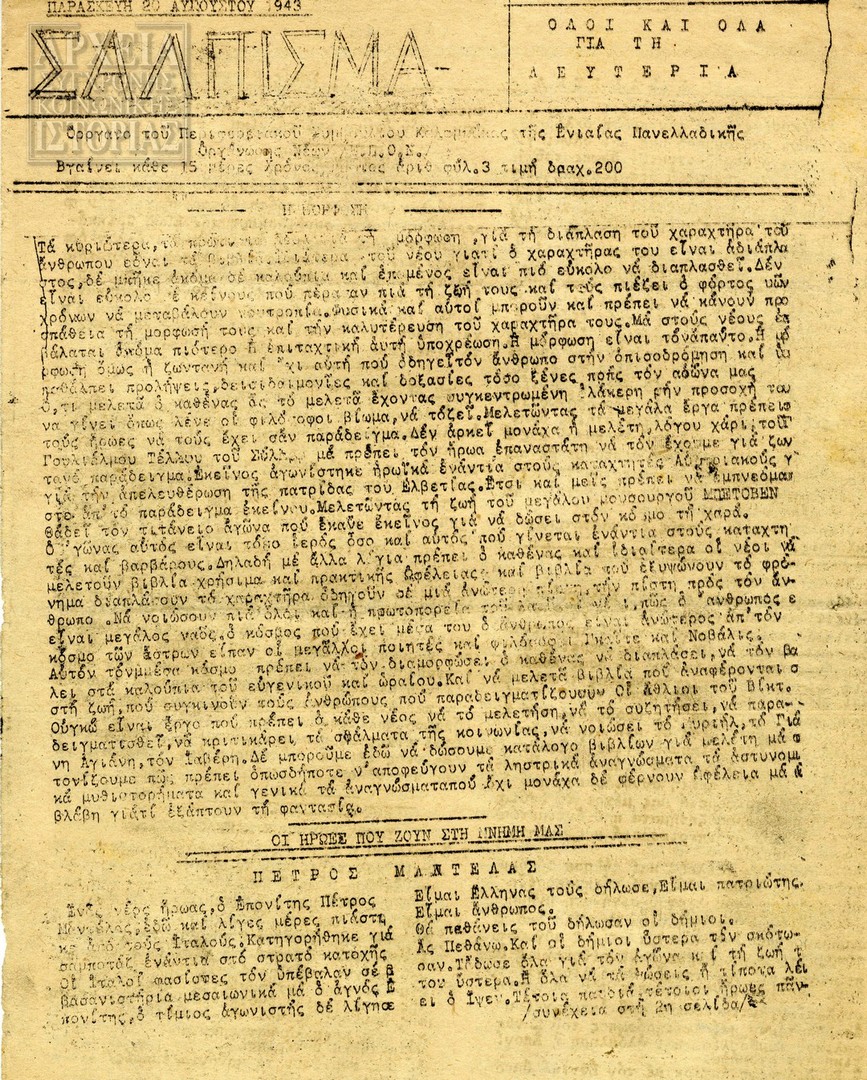 ΠΑΡΑΣΚΕΥΗ 20 ΑΥΓΟΥΣΤΟΥ 1943
ΣΑΛΠΙΣΜΑ
ΟΛΟΙ ΚΑΙ ΟΛΑ
ΓΙΑ ΤΗ
ΛΕΥΤΕΡΙΑ
ΑΡΧΕΙΑ
ΣΥΓΧΡΟΝΗΣ
ΚΟΙΝΩΝΙΚΗΣ
ΙΣΤΟΡΙΑΣ
Ὄργανο τοῦ Περιφερειακοῦ Συμβουλίου τῆς Ἑνιαίας Πανελλαδικῆς
Ὀργάνωσης Νέων /Ε.Π.Ο.Ν./
Βγαίνει κάθε 15 μέρες Χρόνος ἀριθ φύλ.3 τιμή δραχ.200
Η ΜΟΡΦΩΣΗ
Τά κυριώτερα, τή μόρφωση ,γιά τή διάπλαση τοῦ χαραχτῆρα τοῦ
ἀνθρώπου τοῦ νέου γιατί ὁ χαραχτῆρας του εἶναι ἀδιάπλα
στος,δέ μπῆκε ἀκόμα σέ καλούπια καί ἑπομένος εἶναι πιό εὔκολο νά διαπλασθεῖ.Δέν
εἶναι εὔκολο κείνους πού πέρασαν πιά τή ζωή τους καί τούς πιέζει ὁ φόρτος
χρόνων νά μεταβάλουν νοοτροπία.Φυσικά καί αὐτοί μποροῦν καί πρέπει νά κάνουν προ
σπάθεια τή μορφωσή τους καί τήν καλυτέρευση τοῦ χαραχτῆρα τους.Μά στούς νέους ἐπ
βάλαται ἀκόμα πιότερο ἡ ἐπιταχτική αὐτή ὑποχρέωση.Ἡ μόρφωση εἶναι τόνάπαντο.Ἡ μό
ρφωση ὅμως ἡ ζωντανή καί ὄχι αὐτή πού ὁδηγεῖτόν ἄνθρωπο στήν ὀπισοδρόμηση καί
προλήψεις,δεισιδαιμονίες καί δοξασίες τόσο ξένες πρός τόν αἰῶνα μας
Ὅ,τι μελετᾶ ὁ καθένας ἄς τό μελετᾶ ἔχοντας συγκεντρωμένη ὁλάκερη τήν προσοχή του
νά γίνει ὅπως λένε οἱ φιλόσοφοι βίωμα,νά τόζεῖ.Μελετῶντας τά μεγάλα ἔργα πρέπει
τούς ἥρωες νά τούς ἔχει σάν παράδειγμα.Δέν ἀρκεῖ μονάχα ἡ μελέτη,λόγου χάρι,τοῦ
Γουλιέλμου Τέλλου τοῦ μά πρέπει τόν ἥρωα ἐπαναστάτη νά τόν ἔχουμε γιά ζων
τανό παράδειγμα.Ἐκεῖνος ἀγωνίστηκε ἡρωϊκά ἐνάντια στούς καταχτητές Αὐστριακούς
γιά τήν ἀπελευθέρωση τῆς πατρίδας του Ἑλβετίας.Ἔτσι καί μεῖς πρέπει νά ἐμπνεόμα
στε ἀπ'τό παράδειγμα ἐκείνου.Μελετῶντας τή ζωή τοῦ μεγάλου μουσουργοῦ ΜΠΕΤΟΒΕΝ
Θάδεῖ τόν τιτάνειο ἀγῶνα πού ἔκανε ἐκεῖνος γιά νά δώσει στόν κόσμο τή χαρά.
Ὁ ἀγώνας αὐτός εἶναι τόσο ἱερός ὅσο καί αὐτός πού γίνεται ἐνάντια στούς καταχτη
τές καί βαρβάρους.Δηλαδή μέ ἄλλα λόγια πρέπει ὁ καθένας καί ἰδιαίτερα οἱ νέοι νά
μελετοῦν βιβλία χρήσιμα καί πρακτικῆς ὠφέλειας καί βιβλία πού ἐξυψώνουν τό φρό
νημα διαπλάθουν τό χαραχτῆρα ὁδηγοῦν σέ μιά ἀνώτερη τήν πίστη πρός τόν ἄν
θρωπο .Νά νοιώσουν πιά ὅλοι καί ἡ πρωτοπορεία τοῦ πώς ὁ ἄνθρωπος ε
εἶναι μεγάλος ναός,ὁ κόσμος πού ἔχει μέσα του ὁ ἄνθρωπος εἶναι ἀνώτερος ἀπ'τόν
κόσμο τῶν ἄστρων εἶπαν οἱ μεγάλοι ποιητές καί φιλόσοφοι Γκαῖτε καί Νοβάλις.
Αὐτόν τόνμμέσα κόσμο πρέπει νά τόν διαμορφώσει ὁ καθένας νά διαπλάσει,νά τόν βά
λει στά καλούπια τοῦ εὐγενικοῦ καί ὡραίου.Καί νά μελετᾶ βιβλία πού ἀναφέρονται σ
στή ζωή,πού συγκινοῦν τούς ἀνθρώπους πού παραδειγματίζουυν Οἱ ἄθλιοι τοῦ Βίκτ.
Οὑγκώ εἶναι ἔργο πού πρέπει ὁ κάθε νέος νά τό μελετήση,νά τό συζητήσει,νά παρα-
δειγματισθεῖ,νά κριτικάρει τά σφάλματα τῆς κοινωνίας,νά νοιώσει τό Μυριήλ,τό Γιά
νη Ἀγιάνη,τόν Ἰαβέρη.Δέ μποροῦμε ἐδῶ νά δώσουμε κατάλογο βιβλίων γιά μελέτη μά
τονίζουμε πώς πρέπει ὁπωσδήποτε ν'ἀποφεύγουν τά ληστρικά ἀναγνώσματα τά ἀστυνομι
κά μυθιστορήματα καί γενικά τά ἀναγνώσματαπού ὄχι μονάχα δέ φέρνουν ὠφέλεια μά
βλάβη γιατί ἐξάπτουν τή φαντασία.
ΟΙ ΗΡΩΕΣ ΠΟΥ ΖΟΥΝ ΣΤΗ ΜΝΗΜΗ ΜΑΣ
ΠΕΤΡΟΣ ΜΑΝΤΕΛΑΣ
Ἕνας νέος ἥρωας,ὁ Ἐπονίτης Πέτρος
Μαντέλας,ἐδῶ καί λίγες μέρες πιάστη
κε ἀπό τούς Ἰταλούς.Κατηγορήθηκε γιά
σαμποτάζ ἐνάντια στό στρατό κατοχῆς
Οἱ Ἰταλοί φασίστες τόν ὑπέβαλαν σέ β
βασανιστήρια μεσαιωνικά μά ὁ ἁγνός Ἐ
πονίτης,ὁ τίμιος ἀγωνιστής δέ λίγησε
Εἶμαι Ἕλληνας τούς δήλωσε,Εἶμαι πατριώτης.
Εἶμαι ἄνθρωπος.
Θά πεθάνεις τοῦ δήλωσαν οἱ δήμιοι.
Ἄς Πεθάνω.Καί οἱ δήμιοι ὕστερα τόν σκότω-
σαν.Τἄδωσε ὅλα γιά τόν ἀγῶνα καί τή ζωή τ
του ὕστερα.Ἤ ὅλα νά τά δώσεις ἤ τίποτα λέ
ει ὁ Ἴψεν.Τέτοια παιδιά,τέτοιοι ἥρωες πάν-
/συνέχεια στή 2η σελίδα/